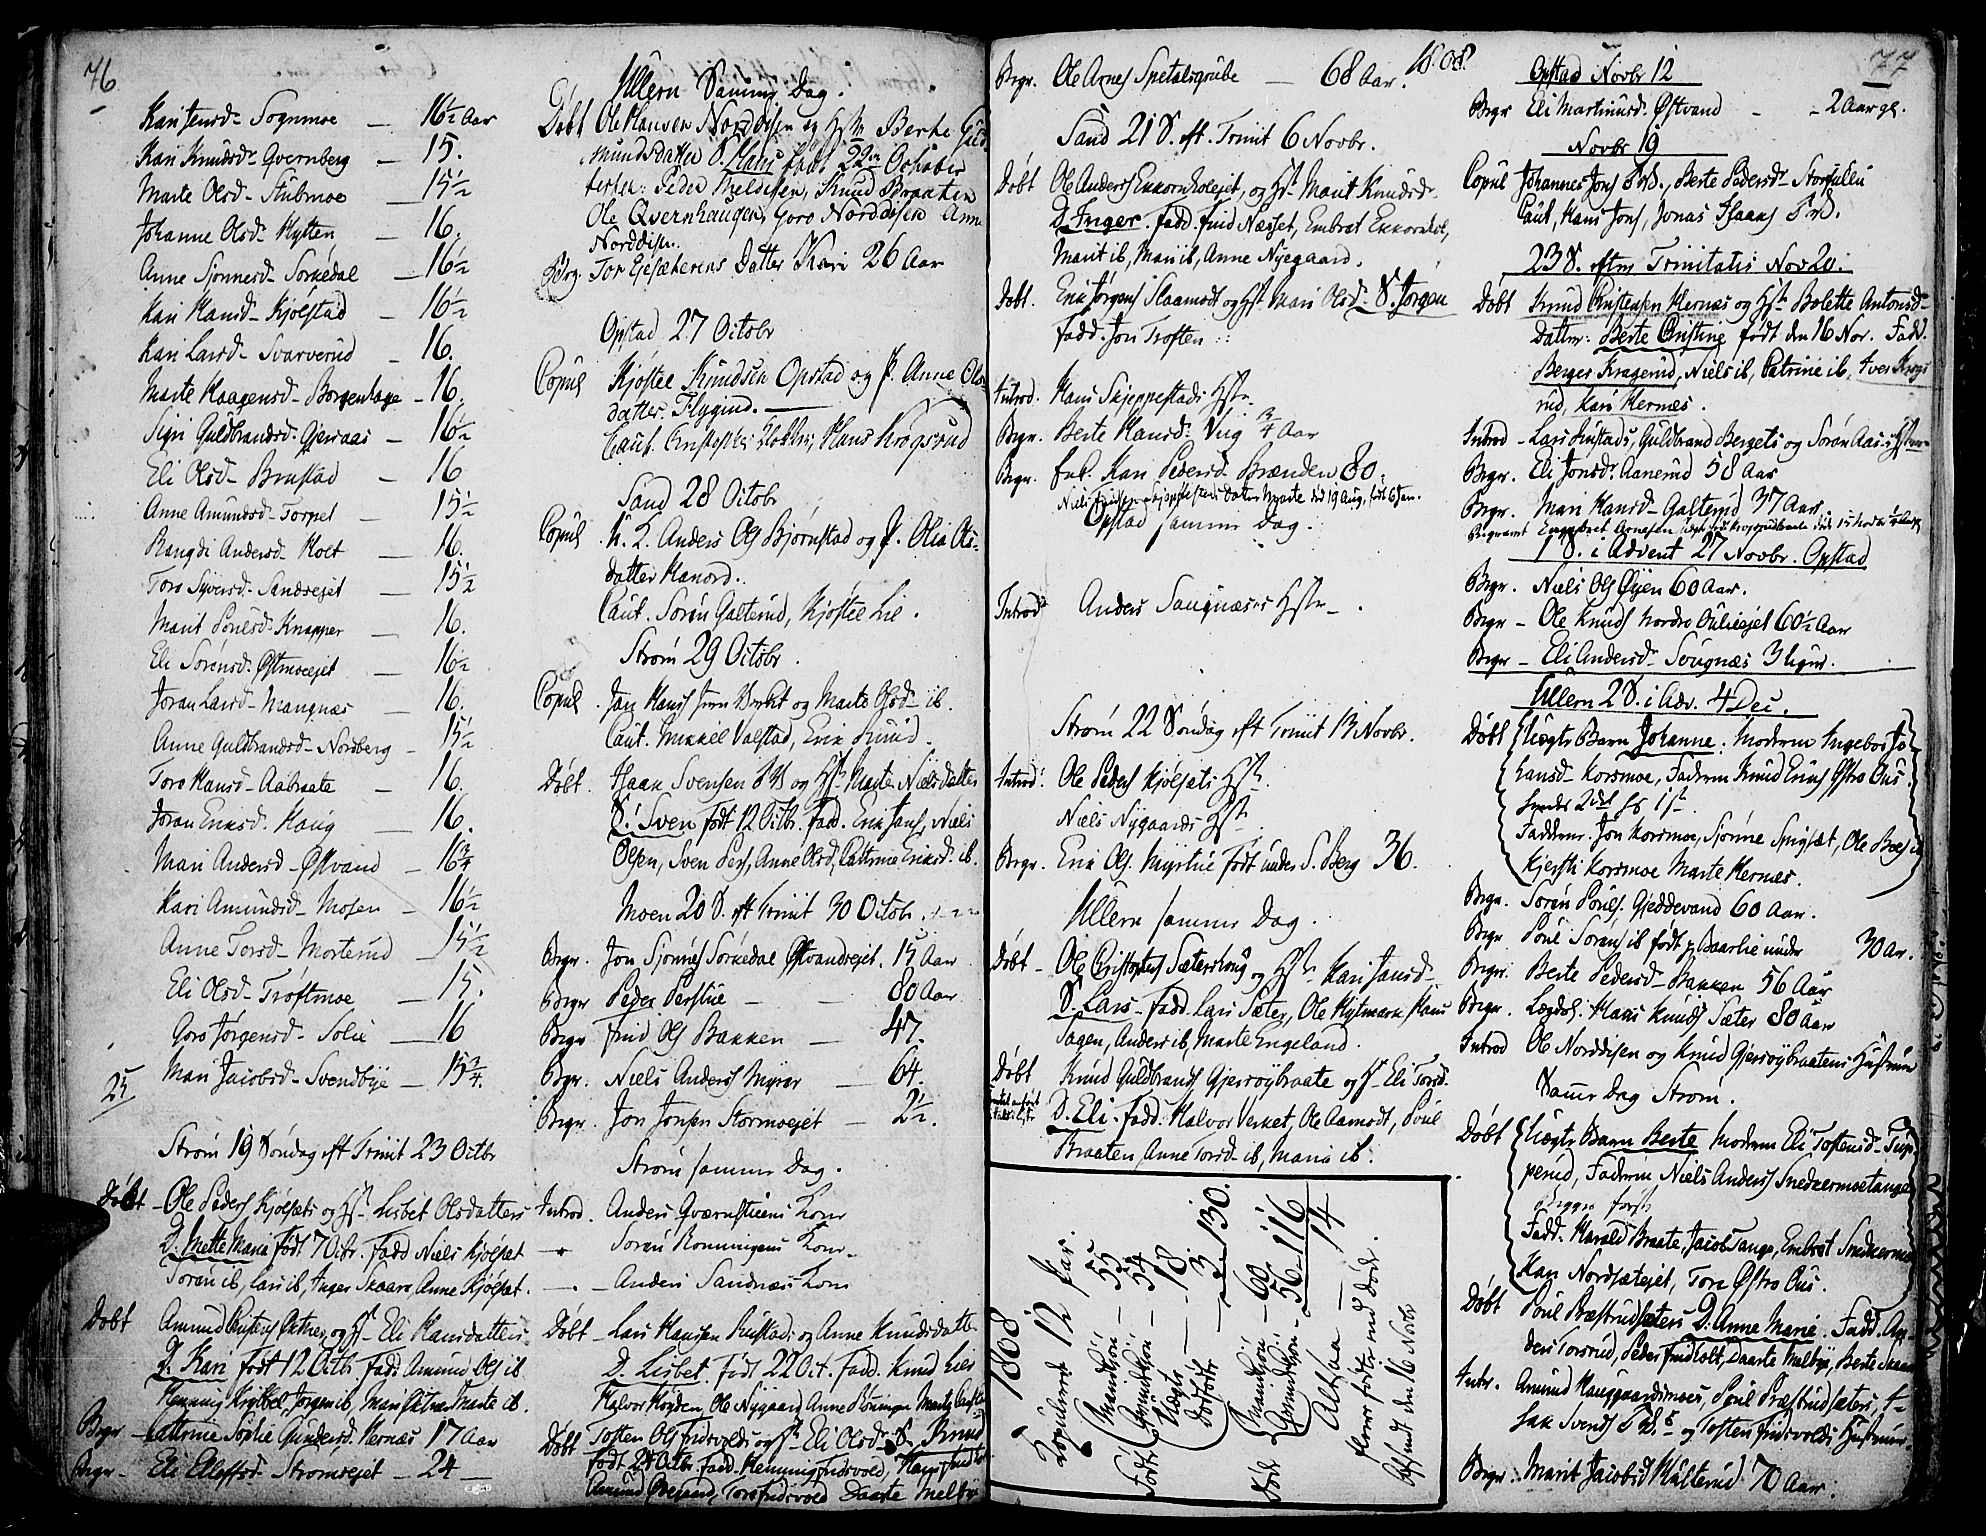 76
Kari Jensd. Sognmoe — 16½ Aar
Kari Knudsd. Qvernberg — 15.
Marte Olsd. Stubmoe — 15½
Johanne Olsd. Hytten — 16.
Anne Sjonnesd. Sorkedal — 16½
Kari Hansd. Kjølstad — 16½
Kari Larsd. Svarverud — 16.
Marte Haagensd. Borgenhage — 16.
Sigri Guldbrandsd. Gjersaas — 16½
Eli Olsd. Brustad — 16
Anne Amundsd. Torpet — 15½
Rangdi Andersd. Holt — 16.
Toro Syversd. Sandsejet — 15½
Marit Poulsd. Knapper — 16.
Eli Sorensd. Østmoeejet — 16½
Joran Larsd. Mangnæs — 16.
Anne Guldbrandsd. Nordberg — 15½
Toro Hansd. Aabraate — 16.
Joran Eriksd. Haug — 16.
Mari Andersd. Østvand — 16¾
Kari Amundsd. Mosen — 16½
Anne Torsd. Morterud — 15½
Eli Olsd. Troftmoe — 15.
Goro Jørgensd. Solie — 16
Mari Jacobsd. Svendbye — 15¾.
25
Strøm 19 Søndag eft Trinit 23 Octbr
Døbt Ole Peders Kjølsæts og Hst. Lisbet Olsdatters
D. Mette Maria født 7 Octr. Fadd Niels Kjølsæt
Soren ib, Lars ib, Inger Skaare, Anne Kjølsæt.
Døbt Amund og H. Eli Hansdatters
D. Kari født 12 Octbr. Fadd. Amund Ols ib
Henning Jørgen ib, Marte ib.
Begr Cathrine Sophie Gundersd. Hernæs 17 Aar
Begr. Eli Eleffsd. Stromsejet — 24 —
Ullern Samme Dag.
Døbt Ole Hansen Norddisen og Hstr Berte Gud-
mundsdatter S. Hans født 22de October
Peder Meldisen, Knud Braaten
Ole Qvernhaugen, Goro Norddisen Anne
Norddisn.
Begr Tor Datter Kari 26 Aar
Opstad 27 Octobr
Copul Kjøstel Knudsen Opstad og P. Anne Ols-
datter Flygind. —
Caut. Hans Krogsrud
Sand 28 Octobr
Copul U. K. Anders Ols Bjørnstad og P. Olia Ols-
datter Hanord.
Caut. Soren Galterud, Kjøstel Lie.
Strøm 29 Octobr.
Copul. Jan Hans Verket og Marte Olsd. ib.
Caut. Mikkel Valstad, Erik
Døbt. Isaak Svensen og Hst. Marte Nielsdatter
S. Sven født 12 Octbr. Fadd. Erik Jans, Niels
Olsen, Sven Pers, Anne Olsd, Cathrine Eriksd. ib.
Moen 20 S. eft Trinit 30 Octobr.
Begr. Jon Sjonnes Sorkedal Østvandsejet. 15 Aar
Begr Peder Perstue — — 80 Aar
Begr Frid Ols Bakken — 47.
Begr. Niels Anders Myrer — 64.
Begr. Jon Jonsen Stormoejet — 2½.
Strøm samme Dag.
Introd. Anders Qværnstuens Kone
— Soren Ronningens Kone
— Anders Sandnæs Kone
Døbt Lars Hansen Rustads og Anne Knudsdatter
D. Lisbet. Født 22 Oct. Fadd. Knud Lier
Halvor Hoyden, Ole Nygaard, Anne Roningen
Døbt Tosten Ols Fridsvolds og H. Eli Olsd. S. Knud
født 24 Octbr. Fadd. Henning Fridsvold,
Amund Toro Fridsvold Daarte Melbye
Begr. Ole Arnes Spetalsgrube — 68 Aar.
1808
Sand 21 S. eft. Trinit 6 Novbr.
Døbt Ole Anders Ekkornholejet, og Hst. Marit Knudsd.
D. Inger. Fadd. Frid Næsset, Embret Ekkornhol,
Marit ib, Mari ib, Anne Nyegaard.
Døbt. Erik Jørgens Slaamodt og Hst. Mari Olsd. S. Jørgen
Fadd. Jon Troften
Introd. Hans Skjeppestads Hstr.
Begr. Berte Hansd. Vug ¾ Aar
Begr. Fat. Kari Pedersd. Brænden 80.
Opstad samme Dag.
Introd Anders Saugnæses Hstr.
Strøm 22 Søndag eft Trinit 13 Novbr.
Introd. Ole Peders Kjølsæts Hstr.
Niels Nygaards Hstr
Begr. Erik Ols. Myrstue født under S. Berg 36.
Ullern samme Dag.
Døbt Ole Christophers Sætershoug og Hstr. Kari Jansd.
S. Lars. Fadd. Lars Sæter, Ole Hytmark Hans
Sagen, Anders ib, Marte Engeland.
Døbt Knud Guldbrands Gjersøybraate og H. Eli Torsd.
D. Eli. Fadd. Halvor Verket, Ole Aamodt, Poul
Braaten, Anne Torsd. ib, Maria ib.
1808
Kopulered 12 Par.
Fødte Mandkjøn — 55
Qvindkjøn — 54
Uægte — 18
Dødfødte — 3. 130.
Døde Mandkjøn — 60
Qvindkjøn — 56. 116
Altsaa — 14
flere fødte end døde.
Afsendt den 16 Novbr
77
Opstad Novbr 12
Begr Eli Martinusd. Østvand — 2 Aar gl.
Novbr 19
Copul Johannes Jons, Berte Pedersd. Storfulu
Caut. Hans Jons, Jonas Isaacs
23 S. efter Trinitatis Nov 20.
Døbt Knud Christensen Hernæs og Hstr Bolette Antonsd-
datter: Berte Christine født den 16 Nov. Fadd.
Berger Kragerud, Niels ib, Catrine ib, Iver Krogs
rud, Kari Hernæs.
Introd Lars Rustads, Guldbrand Bergets og Soren Aas. Hstr
Begr. Eli Jonsd. Aanerud 58 Aar
Begr. Mari Hansd. Galterud 37 Aar.
1 S. i Advent 27 Novbr. Opstad
Begr. Niels Ols Øyen 60 Aar.
Begr Ole Knuds Nordre Ouliejet 60½ Aar
Begr Eli Andersd. Sougnæs 3 Uger.
Ullern 2 S. i Adv. 4 Dec.
Døbt Uægte Barn Johanne. Moderen Ingebor Jo-
hansd. Korsmoe, Faderen Knud Erics Østre Ous.
Faddere. Jon Korsmoe, Sjonne Ole
Kjersti Korsmoe Marte Hernæs.
Begr. Soren Pouls. Gjeddevand 60 Aar.
Begr Poul Sorens ib født p. Baarlie under 30 Ar.
Begr. Berte Pedersd. Bakken 56 Aar
Begr. Lægdsl. Hans Knuds Sæter 80 Aar
Introd Ole Norddisen og Knud Gjersøybraatens Hustruer
Samme Dag Strøm.
Døbt Uægte Barn Berte Moderen Eli Tostensd. Tup-
perud, Faderen Niels Anders Snedkermoetangen
Begges første
Fadd. Harald Braate, Jacob Tange, Embret Snedkermoe
Kari Nordsætejet, Tore Østre Ous.
Døbt Poul Præstrudsæters D. Anne Marie. Fadd. An-
ders Torsrud, Peder Daarte Melbye, Berte Skaare
Intr. Amund Haugaardsmoes, Poul Præstrudsæters, I-
sak Svends og Tosten Fridsvolds Hustruer.
Begr. Marit Jacobsd. Kulterud 70 Aar.